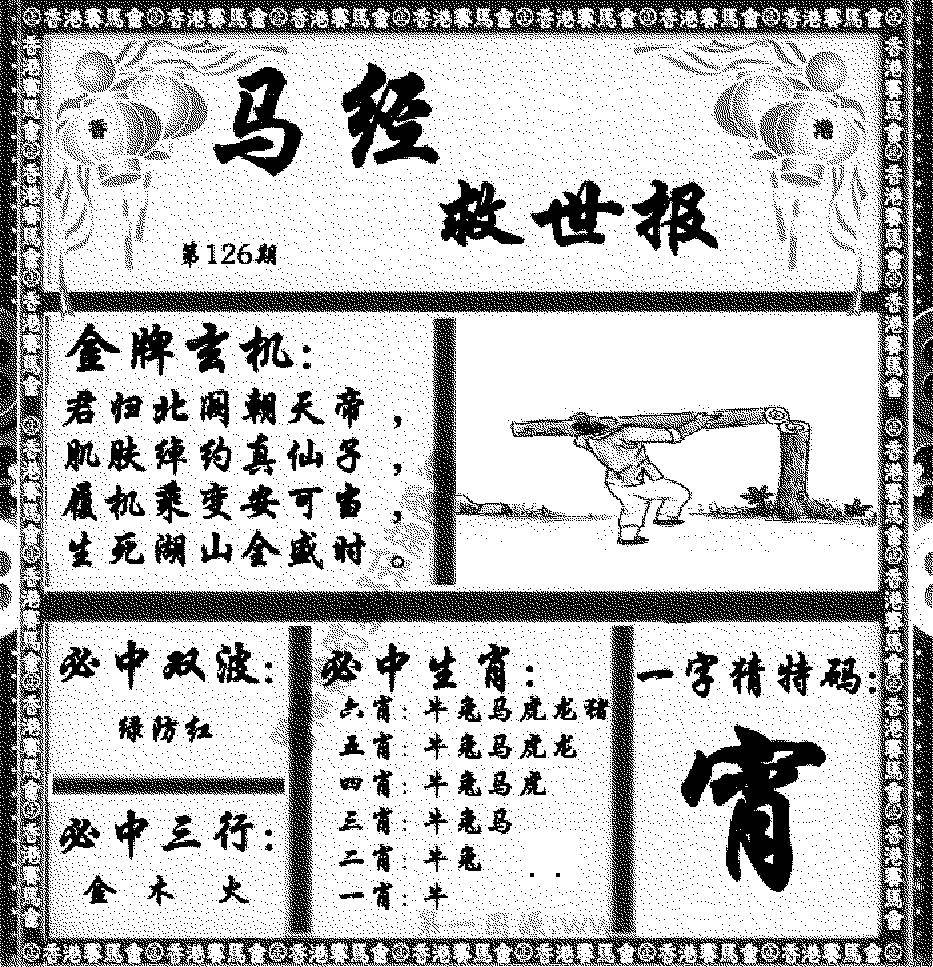 香港賽馬會香港賽馬會香港賽馬會香港賽馬會香港賽馬會香港賽馬會香港賽馬會
香
港
马经
救世报
第126期
金牌玄机:
君归北阙朝天帝,
肌肤绰约真仙子,
履机乘变安可当,
生死湖山全盛时。
必中双波:
绿防红
必中三行:
金 木 火
必中生肖:
六肖: 牛兔马虎龙猪
五肖: 牛兔马虎龙
四肖: 牛兔马虎
三肖: 牛兔马
二肖: 牛兔
一肖: 牛
一字猜特码:
宵
香港賽馬會香港賽馬會香港賽馬會香港賽馬會香港賽馬會香港賽馬會香港賽馬會